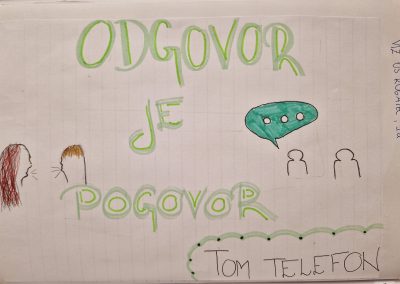 ODGOVOR
JE
POGOVOR
TOM TELEFON